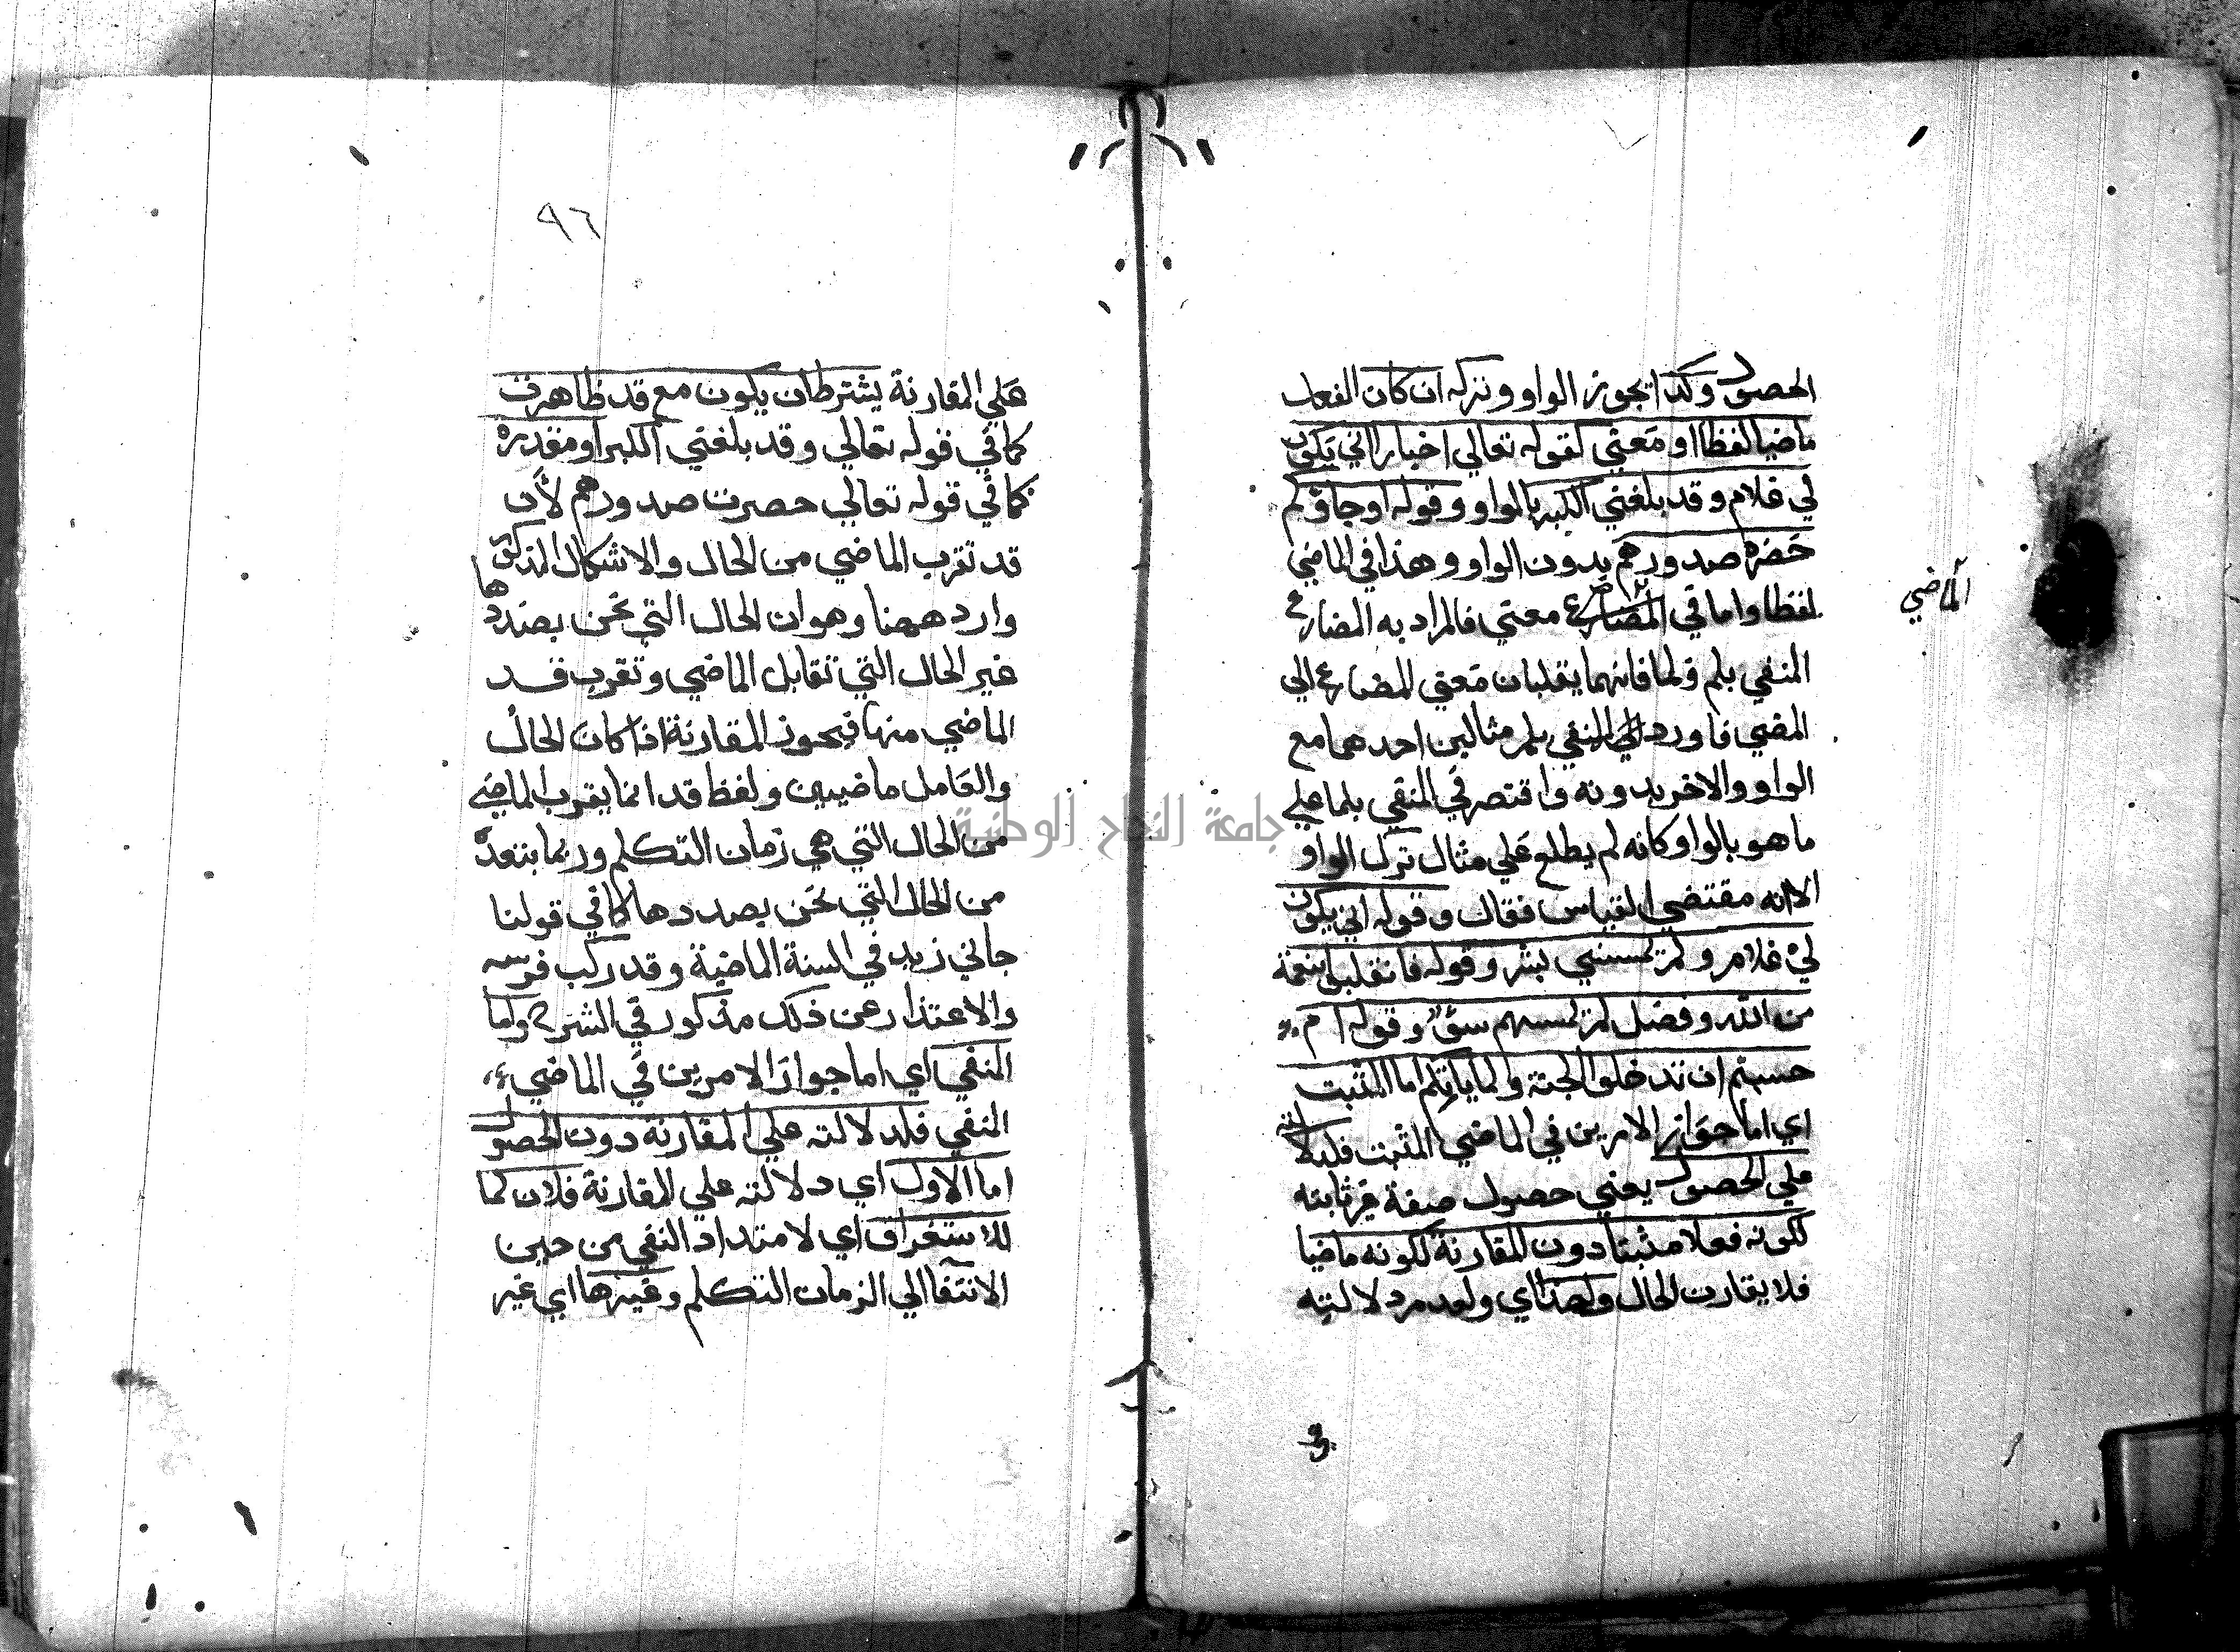 الحصول وكذا تجوز الواو وتركه ان كان الفعل
ماضيا لفظا او معني كقوله تعالي اخبارا اني يكون
لي غلام وقد بلغني الكبر بالواو وقوله او جاؤكم
حضرة صدورهم بدون الواو وهذا في الماضي
لفظا واما في المضارع معني فالمراد به المضارع
الماضي
المنفي بلم ولما فانهما يقلبان معني المضارع الي
المضي فاورد للمنفي بلم مثالين احدهما مع
الواو والاخر بدونه واقتصر في المنفي بلما علي
ما هو بالواو كانه لم يطلع علي مثال ترك الواو
الا انه مقتضي القياس فقال وقوله اني يكون
لي غلام ولم يمسسني بشر وقوله فانقلبوا بنعمة
من الله وفضل لم يمسسهم سوء وقوله ام
حسبتم ان تدخلوا الجنة ولما ياتكم اما المثبت
اي اما جواز الامرين في الماضي المثبت فلدلالته
علي الحصول يعني حصول صفة غير ثابته
لكونه فعلا مثبتا دون المقارنة لكونه ماضيا
فلا يقارن الحال ولهذا اي ولعدم دلالته
٩٦
علي المقارنة يشترط ان يكون مع قد ظاهرة
كما في قوله تعالي وقد بلغني الكبر او مقدره
كما في قوله تعالي حصرت صدورهم لأن
قد تقرب الماضي من الحال والاشكال المذكور
وارد ههنا وهو ان الحال التي نحن بصددها
غير الحال التي تقابل الماضي وتقرب قد
الماضي منها فيجوز المقارنة اذا كان الحال
والعامل ماضيين ولفظ قد انما يقرب الماضي
من الحال التي هي زمان التكلم وربما بتعده
من الحال التي نحن بصددها كما في قولنا
جاني زيد في السنة الماضية وقد ركب فرسه
والاعتذار عن ذلك مذكور في الشرح واما
المنفي اي اما جواز الامرين في الماضي
المنفي فلدلالته علي المقارنة دون الحصول
اما الاول اي دلالته علي المقارنة فلان لما
للاستغراق اي لامتداد النفي من حين
الانتفا الي الزمان التكلم وغيرها اي غير
جامعة النجاح الوطنية